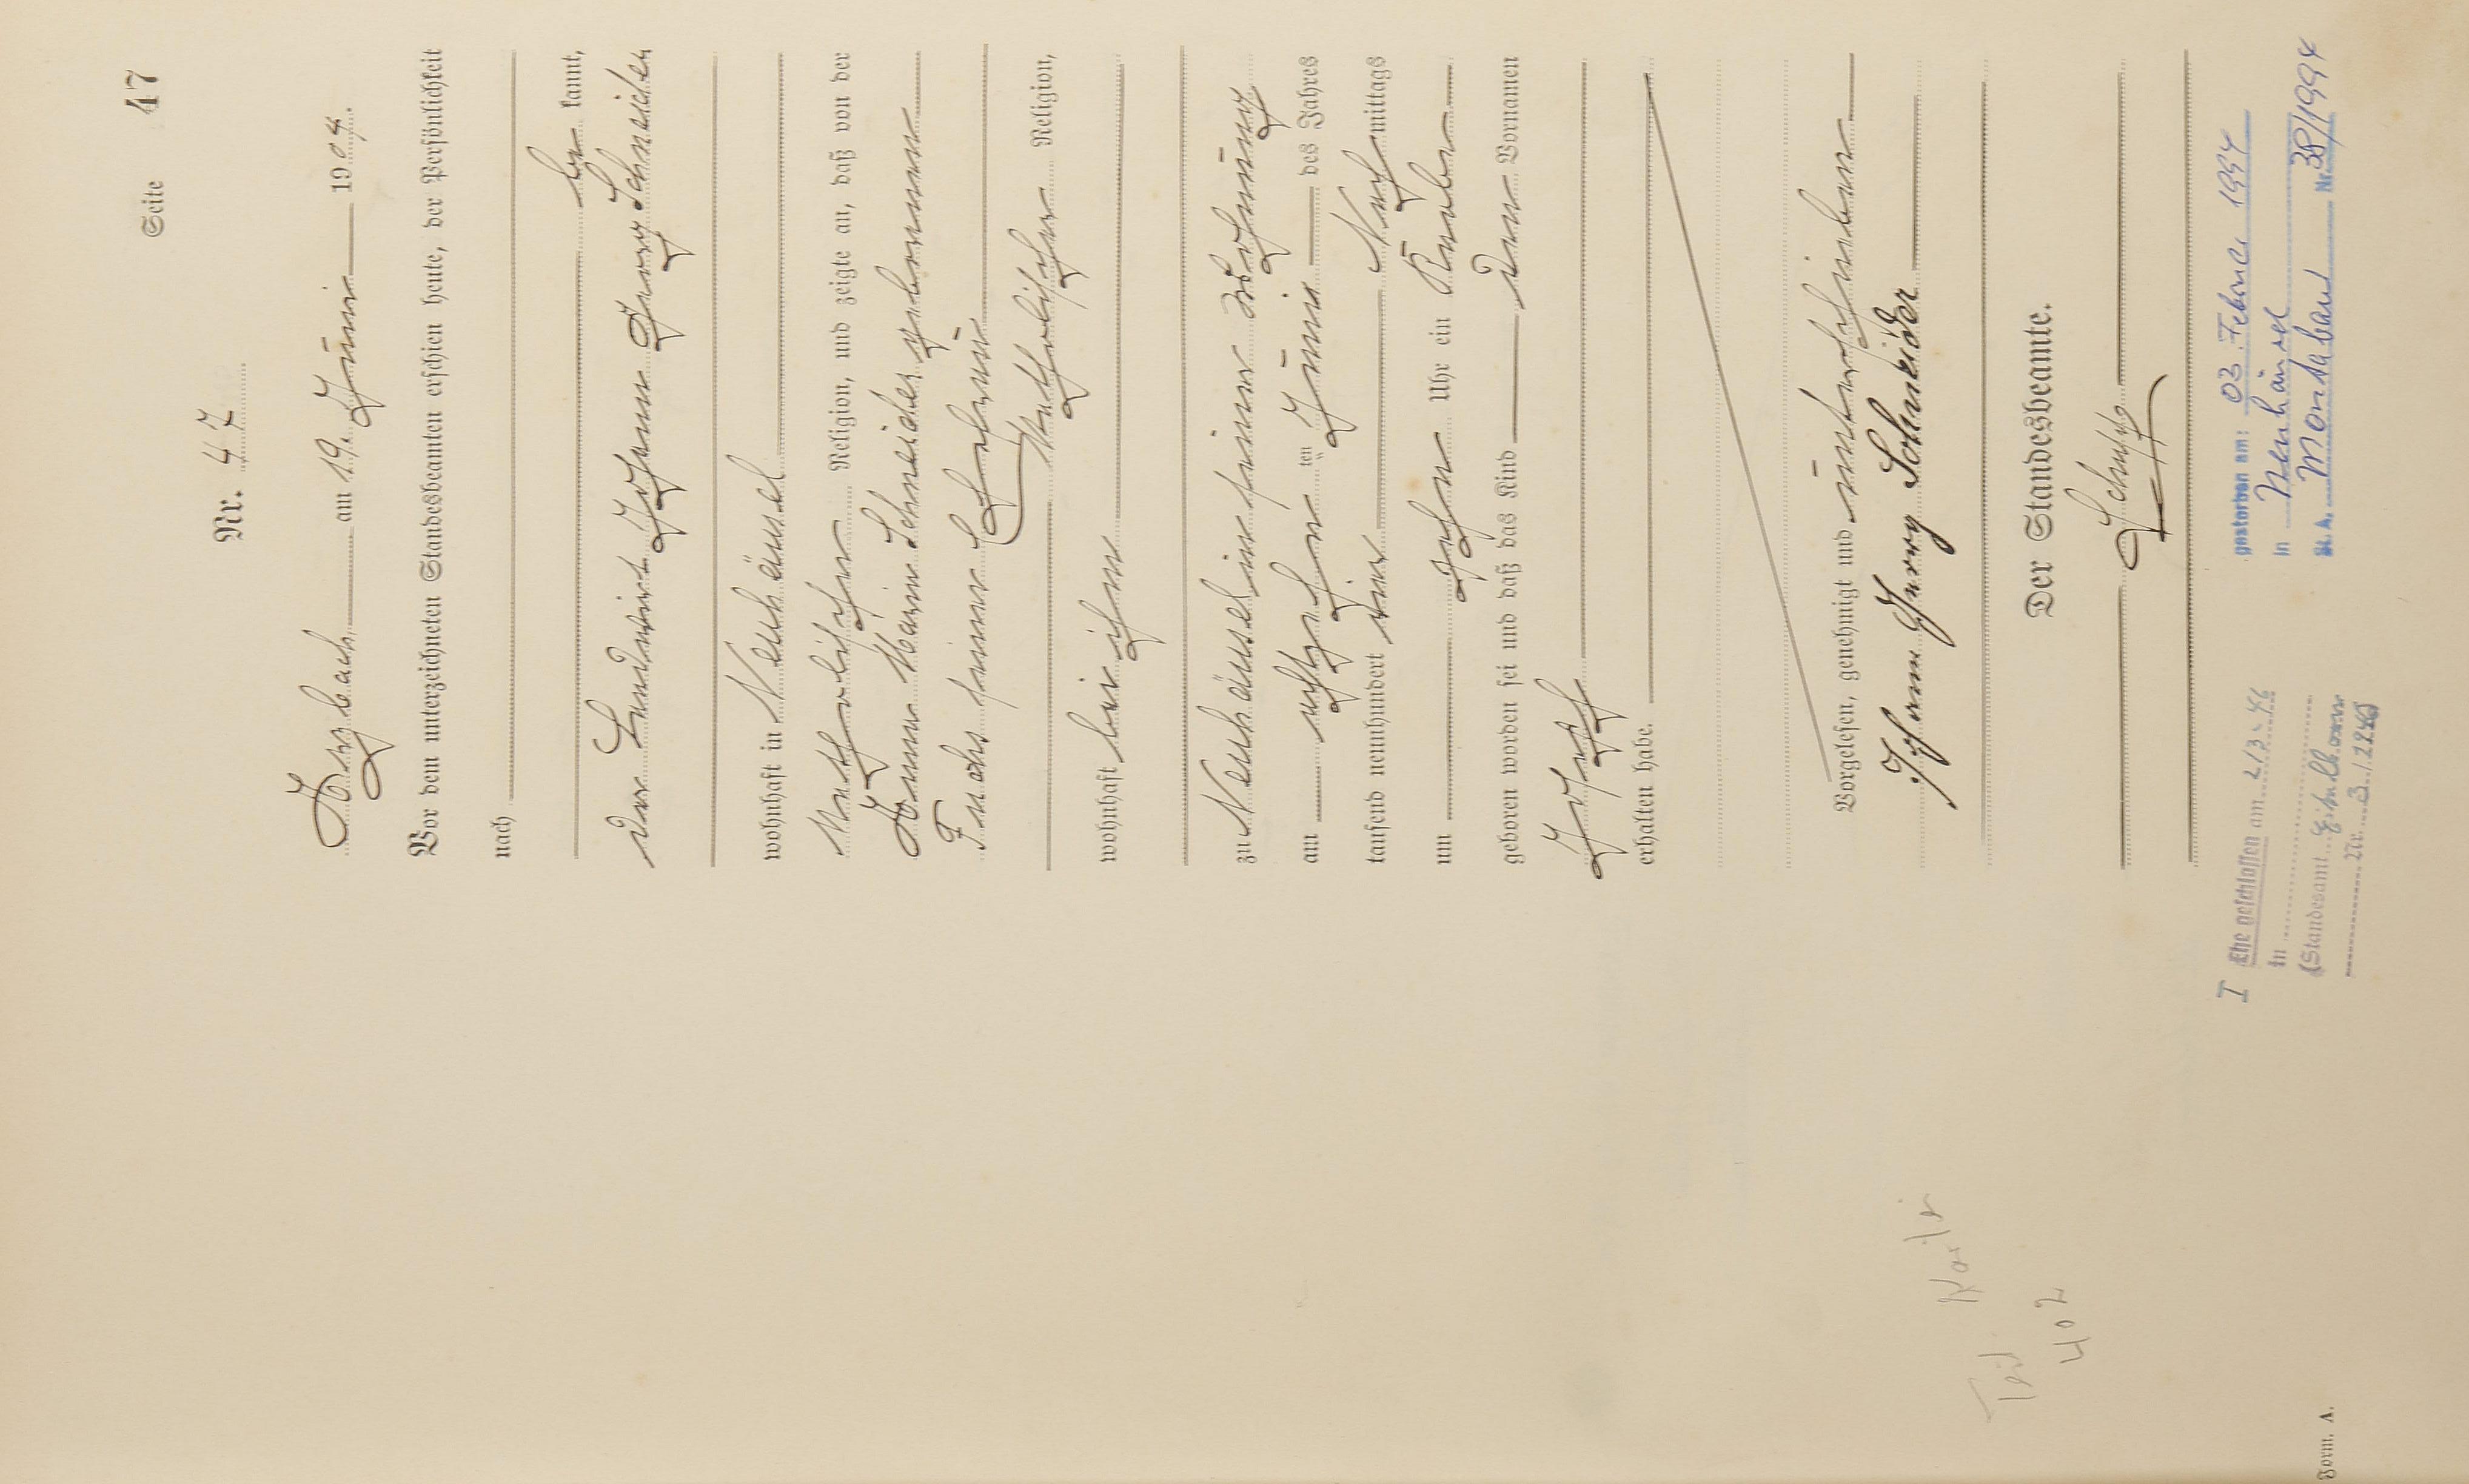 Seite 47
Nr. 47
Arzbach am 19. Juni 1904.
Vor dem unterzeichneten Standesbeamten erschien heute, der Persönlichkeit
nach
be kannt,
der Landwirt Johann Georg Schneider
wohnhaft in Neuhäusel
katholischer Religion, und zeigte an, daß von der
Anna Maria Schneider geborenen
Fuchs seiner Ehefrau
katholischer Religion,
wohnhaft bei ihm
zu Neuhäusel in seiner Wohnung
am achtzehn ten Juni des Jahres
tausend neunhundert vier Nachmittags
um zehn Uhr ein Knabe
geboren worden sei und daß das Kind den Vornamen
Joseph
erhalten habe.
Vorgelesen, genehmigt und unterschrieben
Johann Georg Schneider
Der Standesbeamte.
I Ehe geschlossen am 2/3. 46
in
(Standesamt
Nr.
gestorben am: 03. Februar 1994
in Neuhäusel
St. A. Montabaur Nr. 38/1994
402
Form. A.